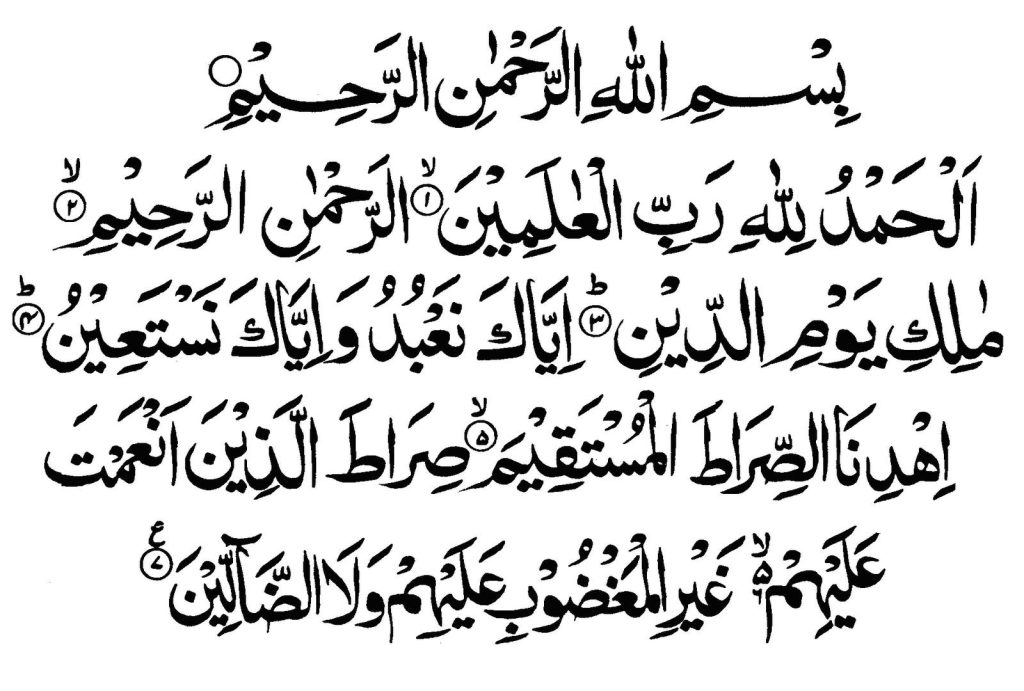 بِسْمِ اللهِ الرَّحْمٰنِ الرَّحِيْمِ ○
اَلْحَمْدُ لِلّٰهِ رَبِّ الْعٰلَمِيْنَ ۙ﴿۱﴾ الرَّحْمٰنِ الرَّحِيْمِ ۙ﴿۲﴾
مٰلِكِ يَوْمِ الدِّيْنِ ؕ﴿۳﴾ اِيَّاكَ نَعْبُدُ وَاِيَّاكَ نَسْتَعِيْنُ ؕ﴿۴﴾
اِهْدِنَا الصِّرَاطَ الْمُسْتَقِيْمَ ۙ﴿۵﴾ صِرَاطَ الَّذِيْنَ اَنْعَمْتَ
عَلَيْهِمْ ۙ۵ ۶ غَيْرِ الْمَغْضُوْبِ عَلَيْهِمْ وَلَا الضَّآلِّيْنَ ع﴿۷﴾